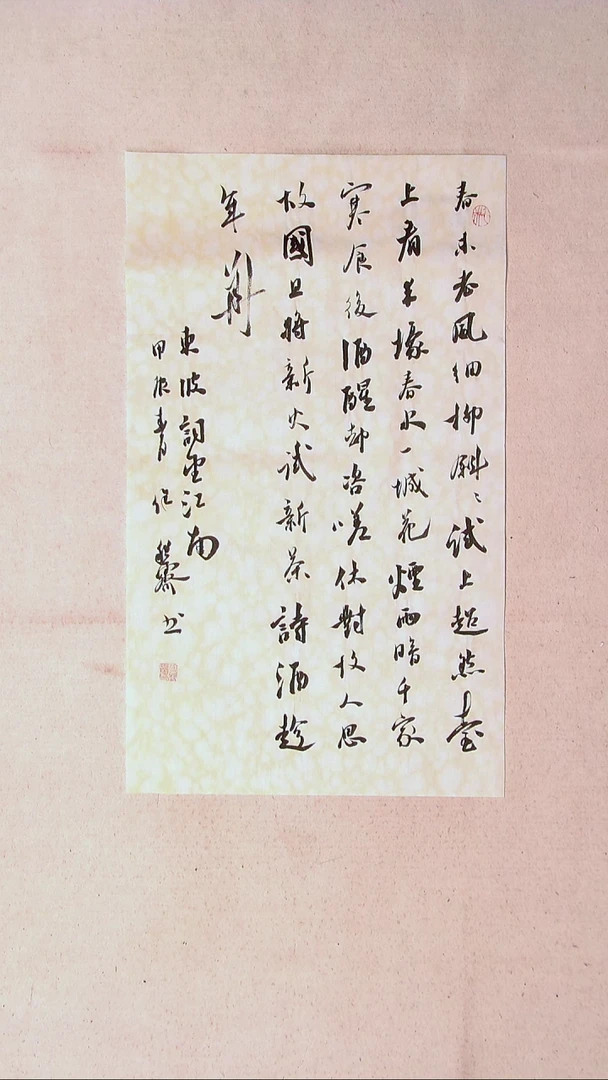 春未老風細柳斜〻試上超然臺
上看半壕春水一城花煙雨暗千家
寒食後酒醒却咨嗟休對故人思
故國且將新火試新茶詩酒趁
年華
東坡詞望江南
甲辰春月
書